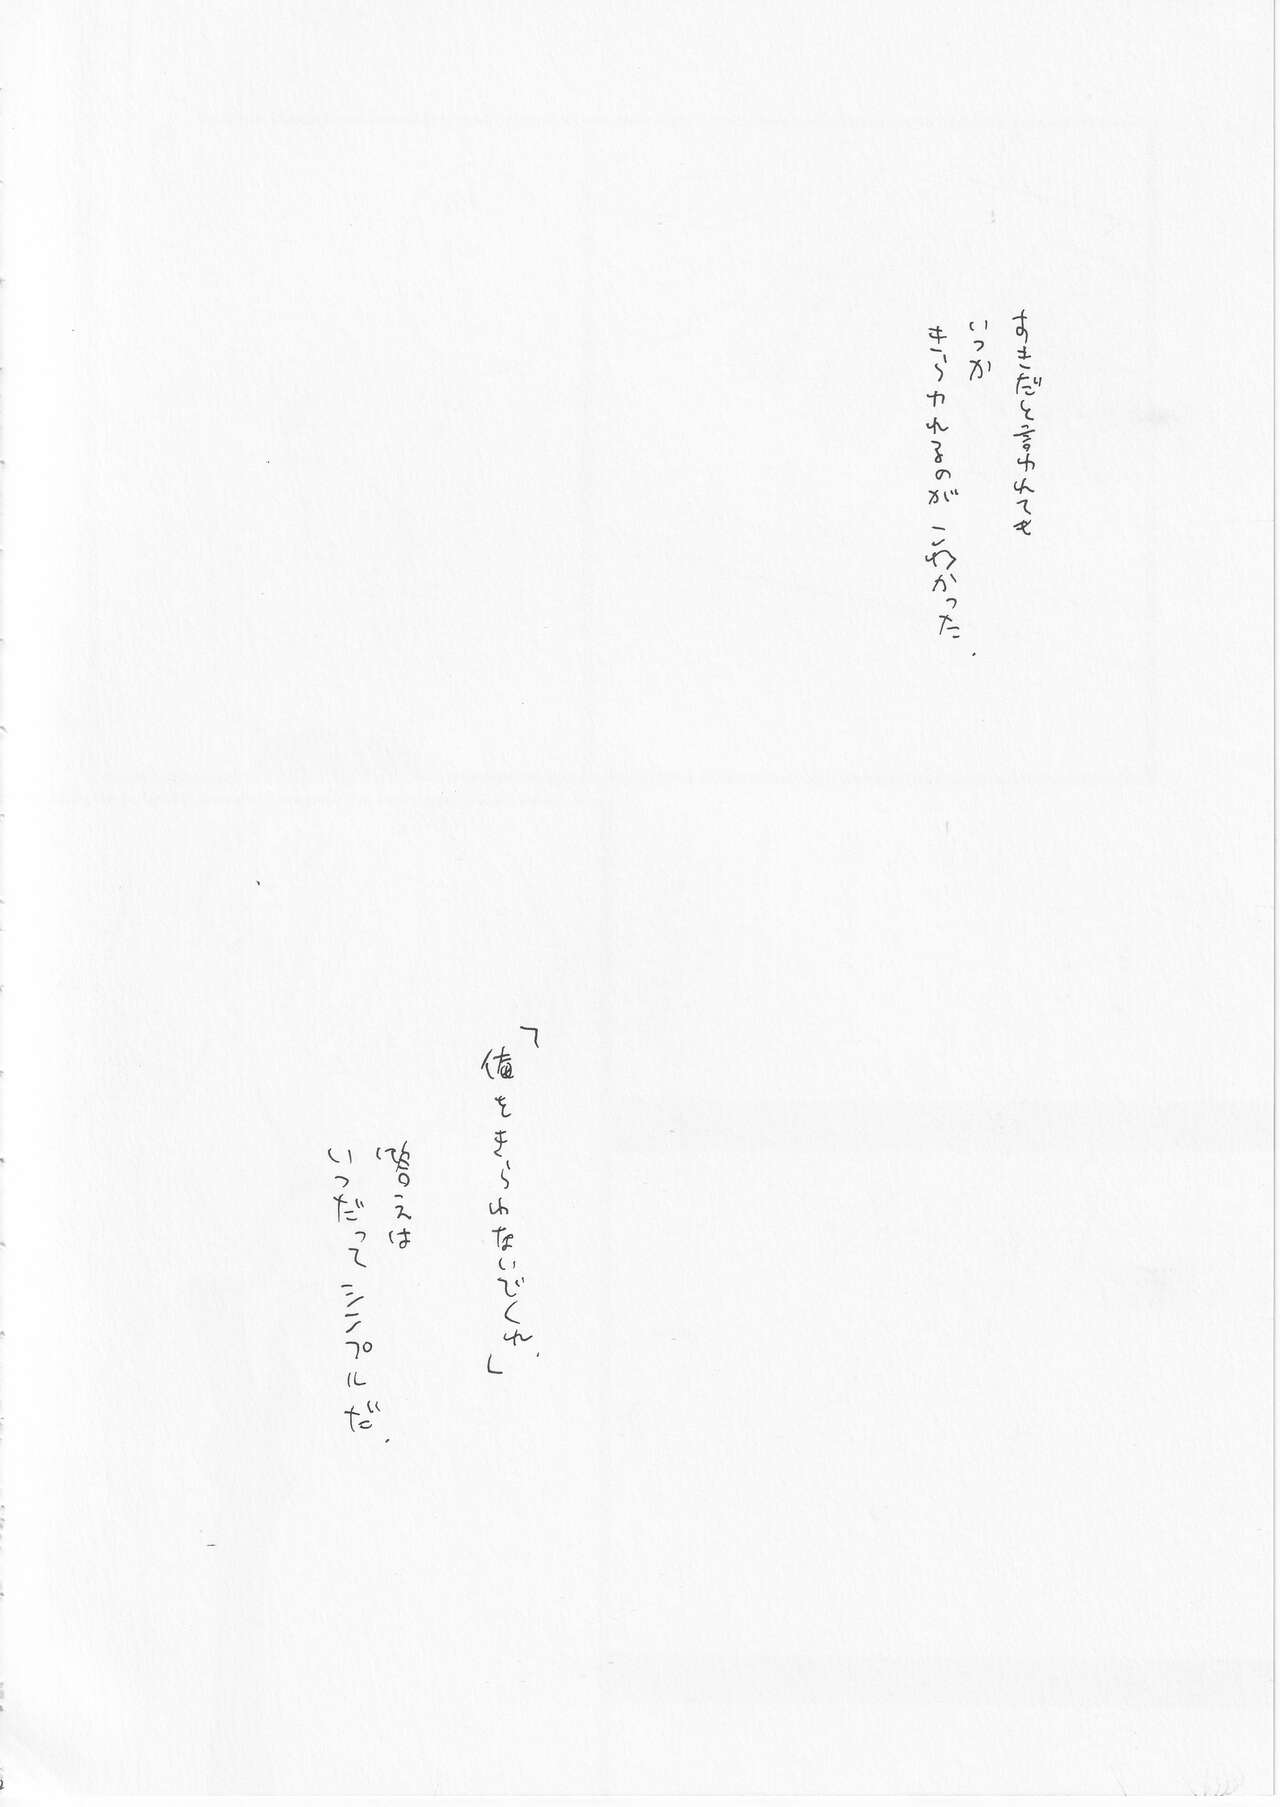 すきだと言われても
いつか
きらわれるのがこわかった.
「俺をきらわないでくれ.」
答えは
いつだってシンプルだ.